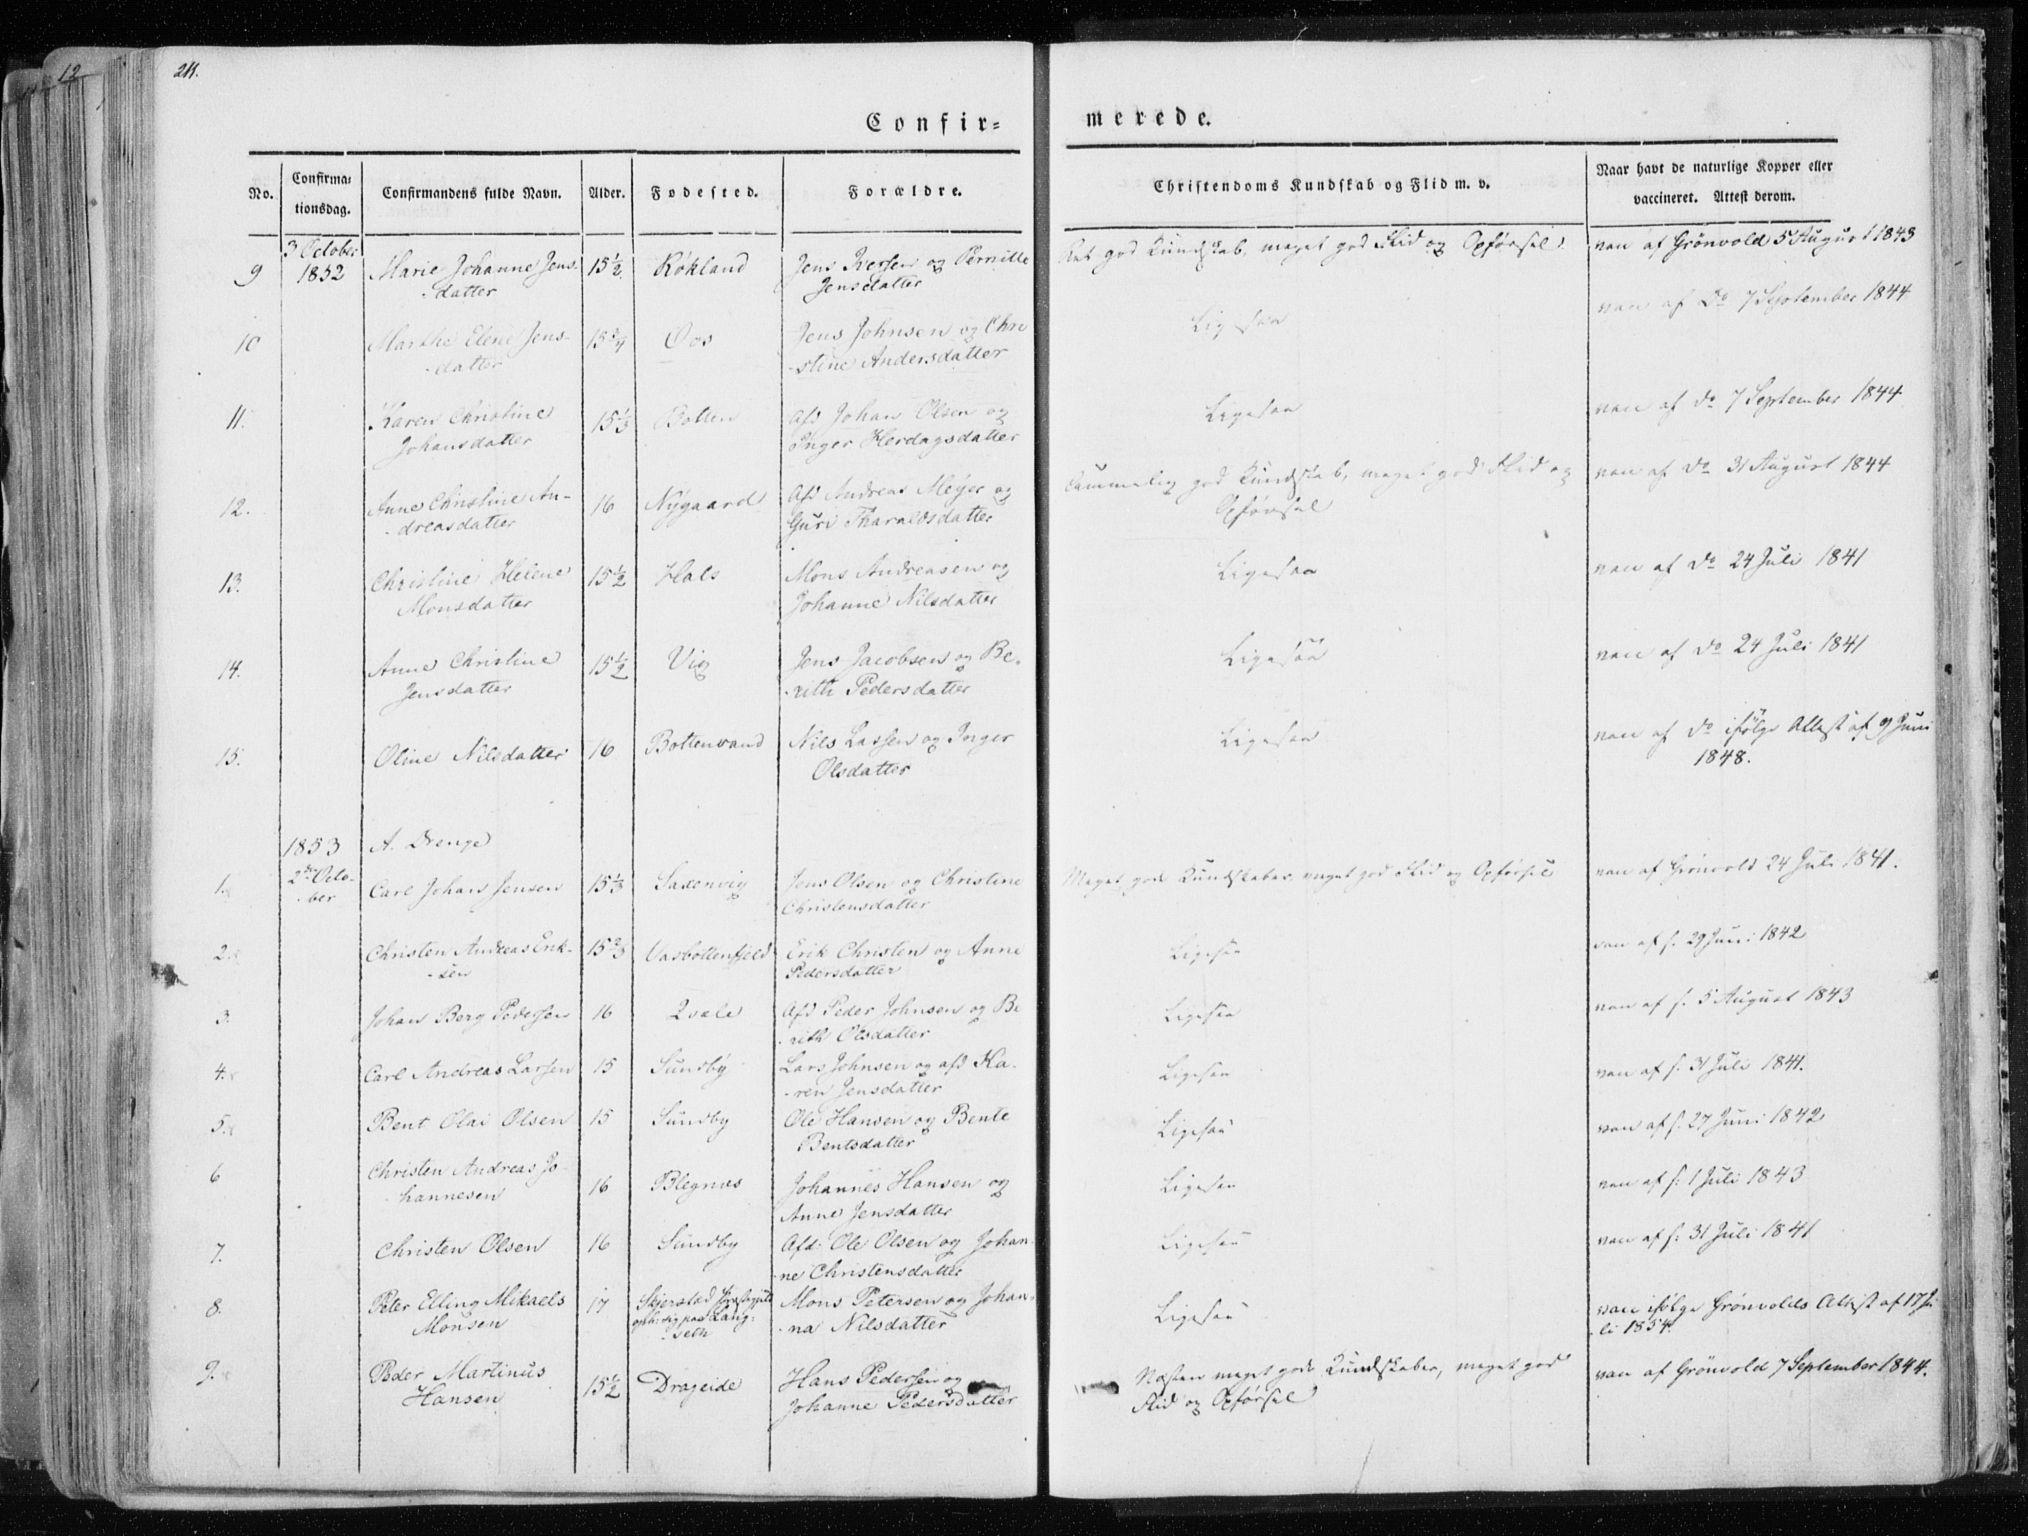 12
211.
Confir=
merede.
No.
Confirma=
tionsdag.
Confirmandens fulde Navn.
Alder.
Fødested.
Forældre.
Christendoms Kundskab og Flid m. v.
Naar havt de naturlige Kopper eller
vaccineret. Attest derom.
9 3 October 1852 Marie Johanne Jens- 15½ Rökland Jens Iversen og Pernille
datter Jensdatter
god Kundskab, meget god Flid og Opförsel.
vac af Grönvold 5 August 1843
10 Marthe Elene Jens- 15¾ Oos Jens Johnsen og Chri
-datter -stine Andersdatter
Ligesaa
vac af do 7 September 1844
11. Karen Christine 15⅓ Botten Afd Johan Olsen og
Johansdatter Inger Herdagsdatter
Ligesaa
vac af do 7 September 1844
12. Anne Christine An- 16 Nygaard Afd Andreas Meyer og
-dreasdatter Guri Tharaldsdatter
Temmelig god Kundskab, meget god Flid og
Opförsel
vac af do 31 August 1844
13. Christine Helene 15½ Hals Mons Andreasen og
Monsdatter Johanne Nilsdatter
Ligesaa
vac af do 24 Juli 1841
14. Anne Christine 15½ Vig Jens Jacobsen og Be-
Jensdatter -rith Pedersdatter
Ligesaa
vac af do 24 Juli 1841
15. Oline Nilsdatter 16 Bottenvand Nils Larsen og Inger
Olsdatter
Ligesaa
vac af do ifölge Attest af 9 Juni
1848.
1853 A. Drenge
1. 2den Octo- Carl Johan Jensen 15⅓ Saxenvig Jens Olsen og Christine
-ber Christensdatter
Meget gode Kundskaber, meget god Flid og Opförsel
vac af Grönvold 24 Juli 1841.
2. Christen Andreas Erik- 15⅔ Vasbottenfjeld Erik Christen og Anne
-sen Pedersdatter
Ligesaa
vac af s. 29 Juni 1842
3. Johan Berg Pedersen 16 Qvale Afd Peder Johnsen og Be
rith Olsdatter
Ligesaa
vac af s. 5 August 1843
4. Carl Andreas Larsen 15 Sundby Lars Johnsen og afd Ka-
-ren Jensdatter
Ligesaa
vac af s. 31 Juli 1841.
5. Bent Olai Olsen 15 Sundby Ole Hansen og Bente
Bentsdatter
Ligesaa
vac af s. 27 Juni 1842
6 Christen Andreas Jo- 16 Blegnæs Johannes Hansen og
hannesen Anne Jensdatter
Ligesaa
vac af s. 1 Juli 1843
7. Christen Olsen 16 Sundby Afd. Ole Olsen og Johan-
-ne Christensdatter
Ligesaa
vac af s. 31 Juli 1841
8. Peter Elling Mikaels 17 Skjerstad Præstegjeld Mons Petersen og Johan-
Monsen oph. sig paa Lang- -na Nilsdatter
-seth
Ligesaa
vac ifölge Grönvolds Attest af 17 Ju
-li 1854.
9. Peder Martinus 15½ Drageide Hans Pedersen og
Hansen Johanne Pedersdatter
Næsten meget gode Kundskaber, meget god
Flid og Opförsel
vac af Grönvold 7 September 1844.